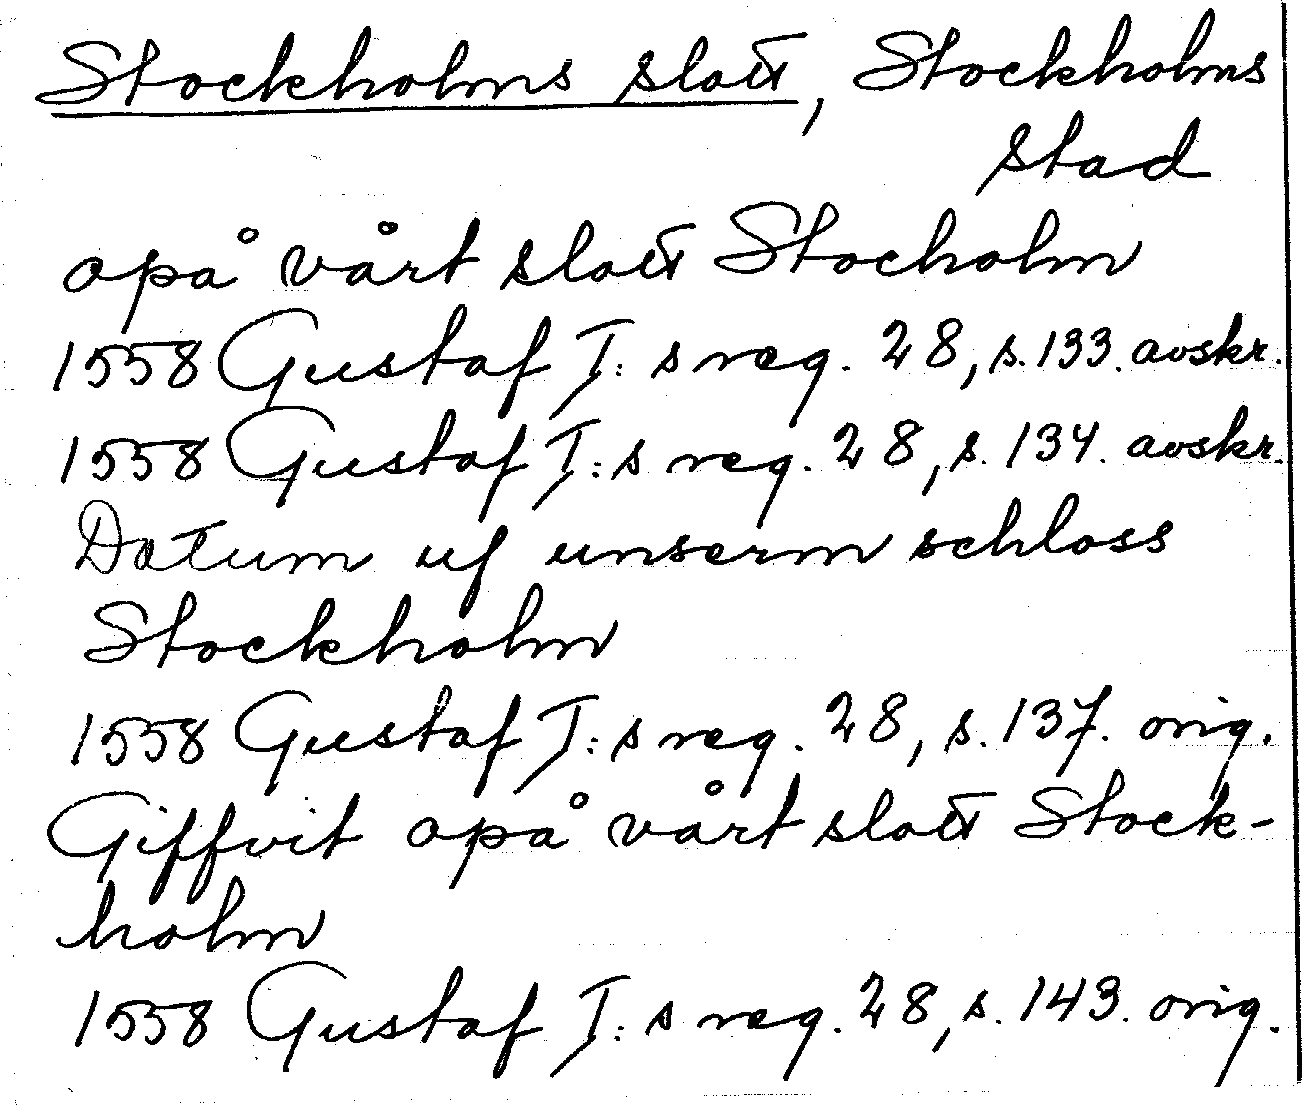 Stockholms slott, Stockholms
stad
opå vårt slott Stocholm
1558 Gustaf I:s reg. 28, s. 133. avskr.
1558 Gustaf I:s reg. 28, s. 134. avskr.
Datum uf unserm schloss
Stockholm
1558 Gustaf I:s reg. 28, s. 137. orig.
Giffvit opå vårt slott Stock-
holm
1558 Gustaf I:s reg. 28, s. 143. orig.